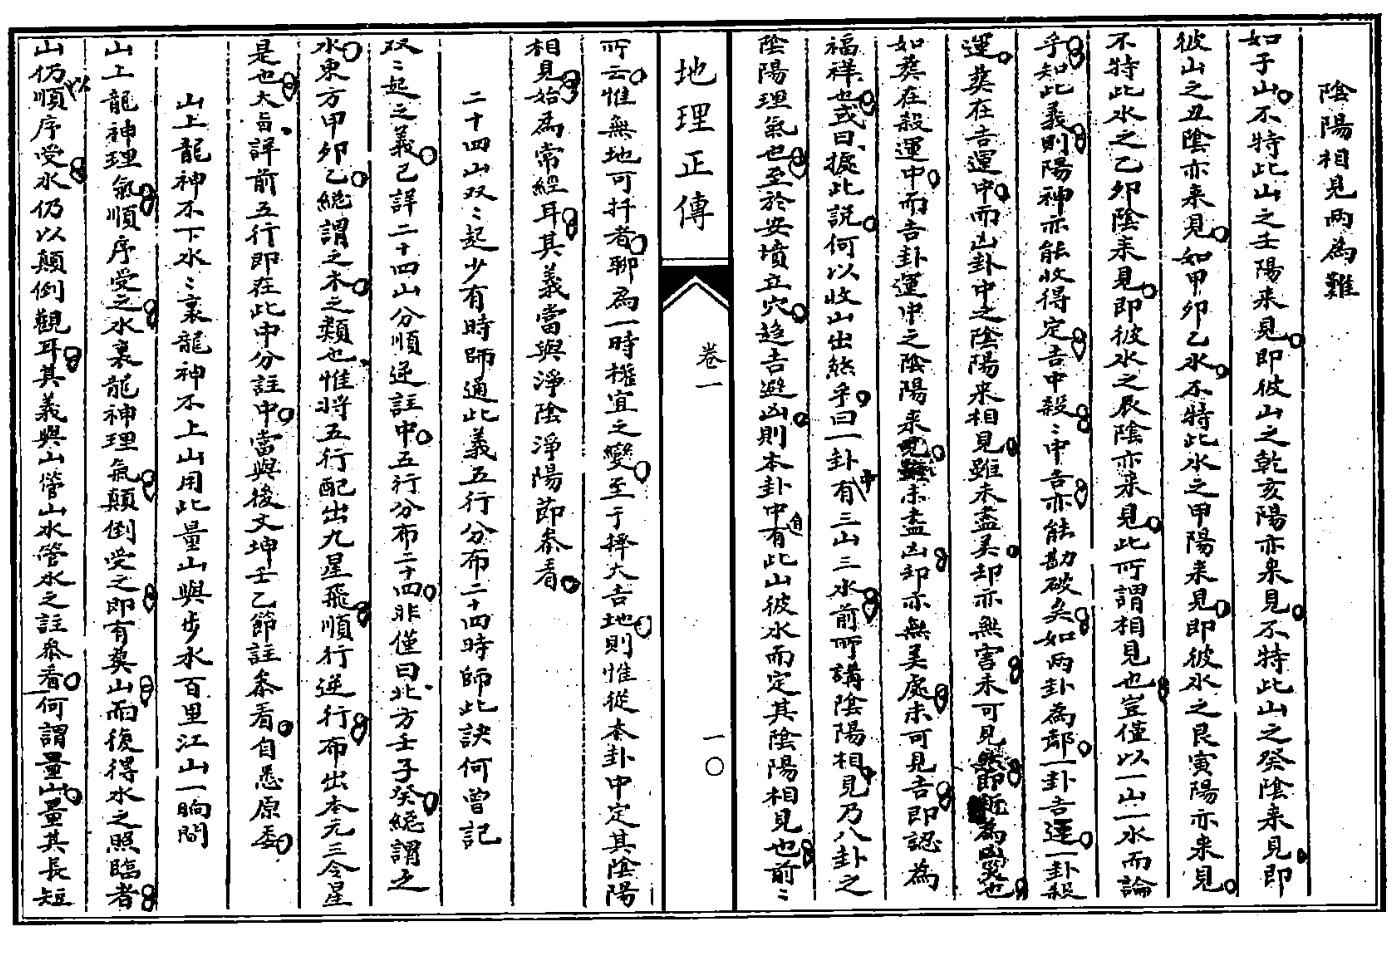 陰陽相見兩為難
如子山不特此山之壬陽来見即彼山之乾亥陽亦来見不特此山之癸陰来見即
彼山之丑陰亦来見如甲卯乙水不特此水之甲陽来見即彼水之艮寅陽亦来見
不特此水之乙卯陰来見即彼水之辰陰亦来見此所謂相見也豈僅以一山一水而論
乎知此義則陽神亦能收得定吉中殺〻中吉亦能勘破矣如兩卦為鄰一卦吉運一卦殺
運葬在吉運中而凶卦中之陰陽来相見雖未盡美却亦無害未可見即為凶災也
如葬在殺運中而吉卦運中之陰陽来見雖未盡凶却亦無美處未可見吉即認為
福祥也或曰據此説何以收山出煞乎曰一卦中有三山三水前所講陰陽相見乃八卦之
陰陽理氣也至於安墳立穴趋吉避凶則本卦中自有此山彼水而定其陰陽相見也前〻
地理正傳
卷一
一〇
所云惟無地可扦者聊為一時權宜之變至于擇大吉地則惟從本卦中定其陰陽
相見始為常經耳其義當與淨陰淨陽節叅看
二十四山双〻起少有時師通此義五行分布二十四時師此訣何曾記
双〻起之義已詳二十四山分順逆註中五行分布二十四非僅曰北方壬子癸總謂之
水東方甲卯乙總謂之木之類也惟將五行配出九星飛順行逆行布出本元三令星
是也大旨詳前五行即在此中分註中當與後文坤壬乙節註叅看自悉原委
山上龍神不下水〻裏龍神不上山用此量山與步水百里江山一晌間
山上龍神理氣順序受之水裏龍神理氣顛倒受之即有葬山而復得水之照臨者
山仍以順序受水仍以顛倒觀耳其義與山管山水管水之註叅看何謂量山量其長短